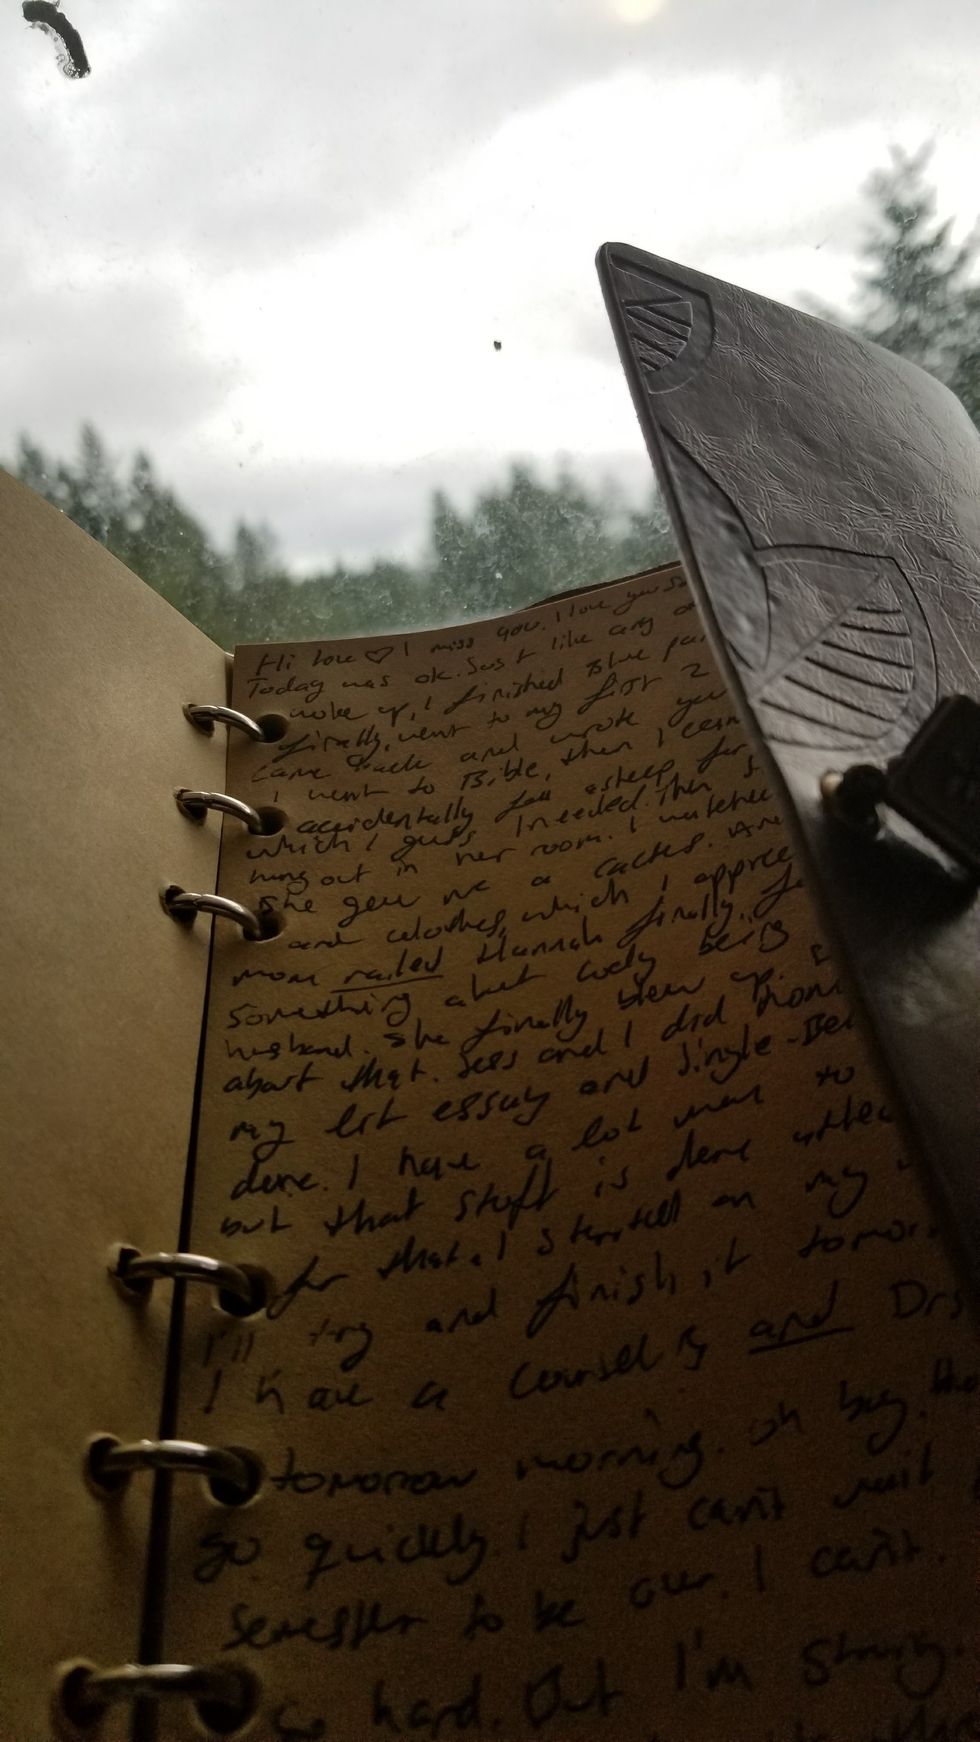 Hi love ♡ I miss you. I love you so
Today was ok. Just like any o
woke up, I finished Blue pa
finally, went to my first 2
came back and wrote you
I went to Bible, then I
accidentally fell asleep for
which I guess I needed. Then
hung out in her room. I watched
She gave me a cactus. An
and clothes, which I appre
mom railed Hannah finally, fo
something about being
husband. She finally blew up.
about that. Jess and I did hom
my lit essay and single-
done. I have a lot more to
but that stuff is done
for that. I started on my
I'll try and finish it tomor
I have a counseling and Drs
tomorrow morning. Oh boy. the
go quickly. I just can't wait
semester to be over. I can't.
so hard. But I'm strong.